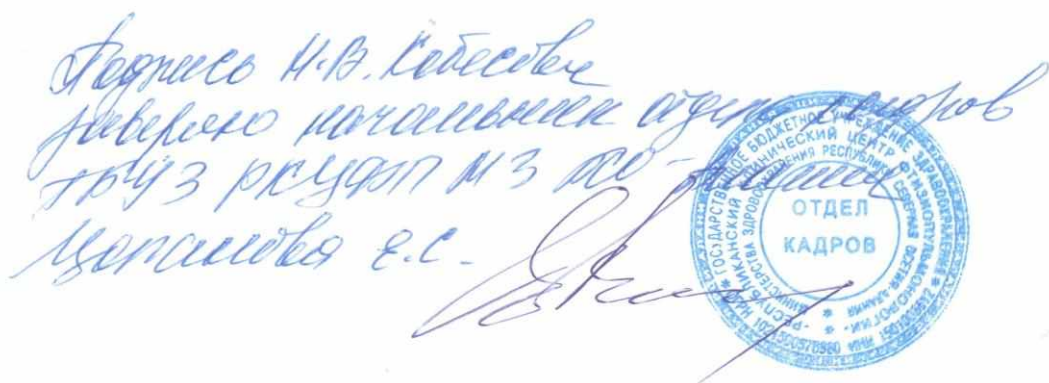 Подпись Н.В. Кобесовой
заверяю начальник отдела кадров
ГБУЗ РКЦФП МЗ РСО-Алания
Царакова Е.С.
ГОСУДАРСТВЕННОЕ БЮДЖЕТНОЕ УЧРЕЖДЕНИЕ ЗДРАВООХРАНЕНИЯ
РЕСПУБЛИКАНСКИЙ КЛИНИЧЕСКИЙ ЦЕНТР ФТИЗИОПУЛЬМОНОЛОГИИ
МИНИСТЕРСТВА ЗДРАВООХРАНЕНИЯ РЕСПУБЛИКИ СЕВЕРНАЯ ОСЕТИЯ-АЛАНИЯ
ОТДЕЛ
КАДРОВ